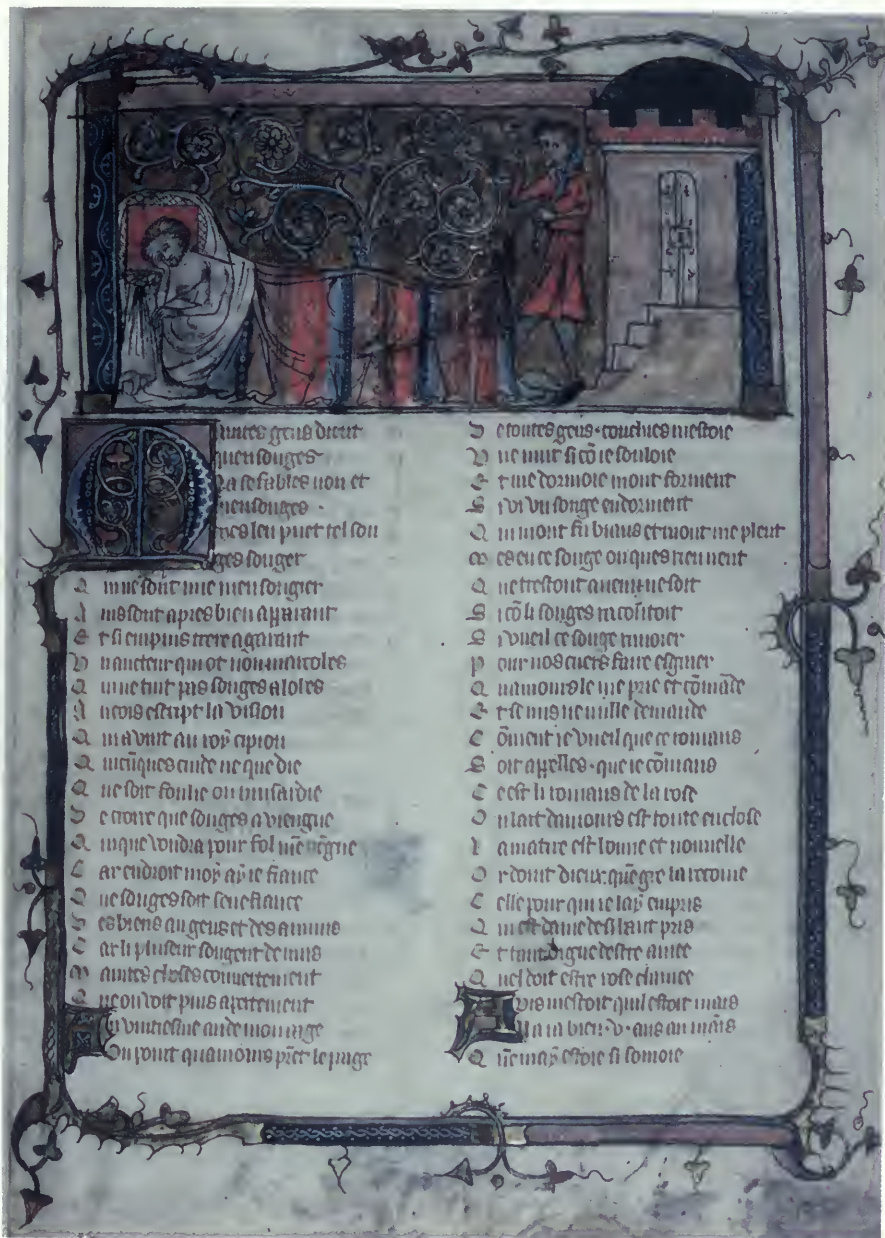 Maintes gens dient
quen songes
Na se fables non et
mensonges .
Mes len puet tel son
ges songer
Q ui ne sont mie mensongier
A ins sont apres bien apparant
E t si empuis trere a garant
V n aucteur qui ot nõ macrobes
Q ui ne tint pas songes a lobes
A ncois escript la vision
Q ui avint au roy cipion
Q uicũques cuide ne que die
Q ue soit folie ou musardie
D e croire que songes aviengne
Q ui que vondra pour fol mẽ tiegne
C ar endroit moy ay ie fiance
Q ue songes soit senefiance
D es biens au gens et des anuuis
C ar li pluseur songent de nuis
M aintes choses couvertement
Q ue on voit puis apertement
Au vintiesme an de mon aage
Ou point quamours prẽt le paage
D e toutes gens . couchies mestoie
V ne nuit si cõ ie souloie
E t me dormoie mout forment
S i vi vn songe en dorment
Q ui mont fu biaus et mout me pleut
M es en ce songe onques rien neut
Q ue trestout avenu ne soit
S i cõ li songes recõtoit
S i vueil ce songe rimoier
P our nos cuers faire esgaier
Q uamours le me prie et cõmãde
E t se nus ne nulle demande
C õment ie vueil que ce romans
S oit appelles . que ie cõmans
C e est li romans de la rose
O u lart damours est toute enclose
L a matire est bonne et nouvelle
O r doint dieux quẽ gre la recoive
C elle pour qui ie lay empris
Q ui est dame de si haut pris
E t tant digne destre amee
Q uel doit estre rose clamee
Avis mestoit quil estoit mais
Il a ia bien .v. ans au mais
Q uẽ may estoie si somoie